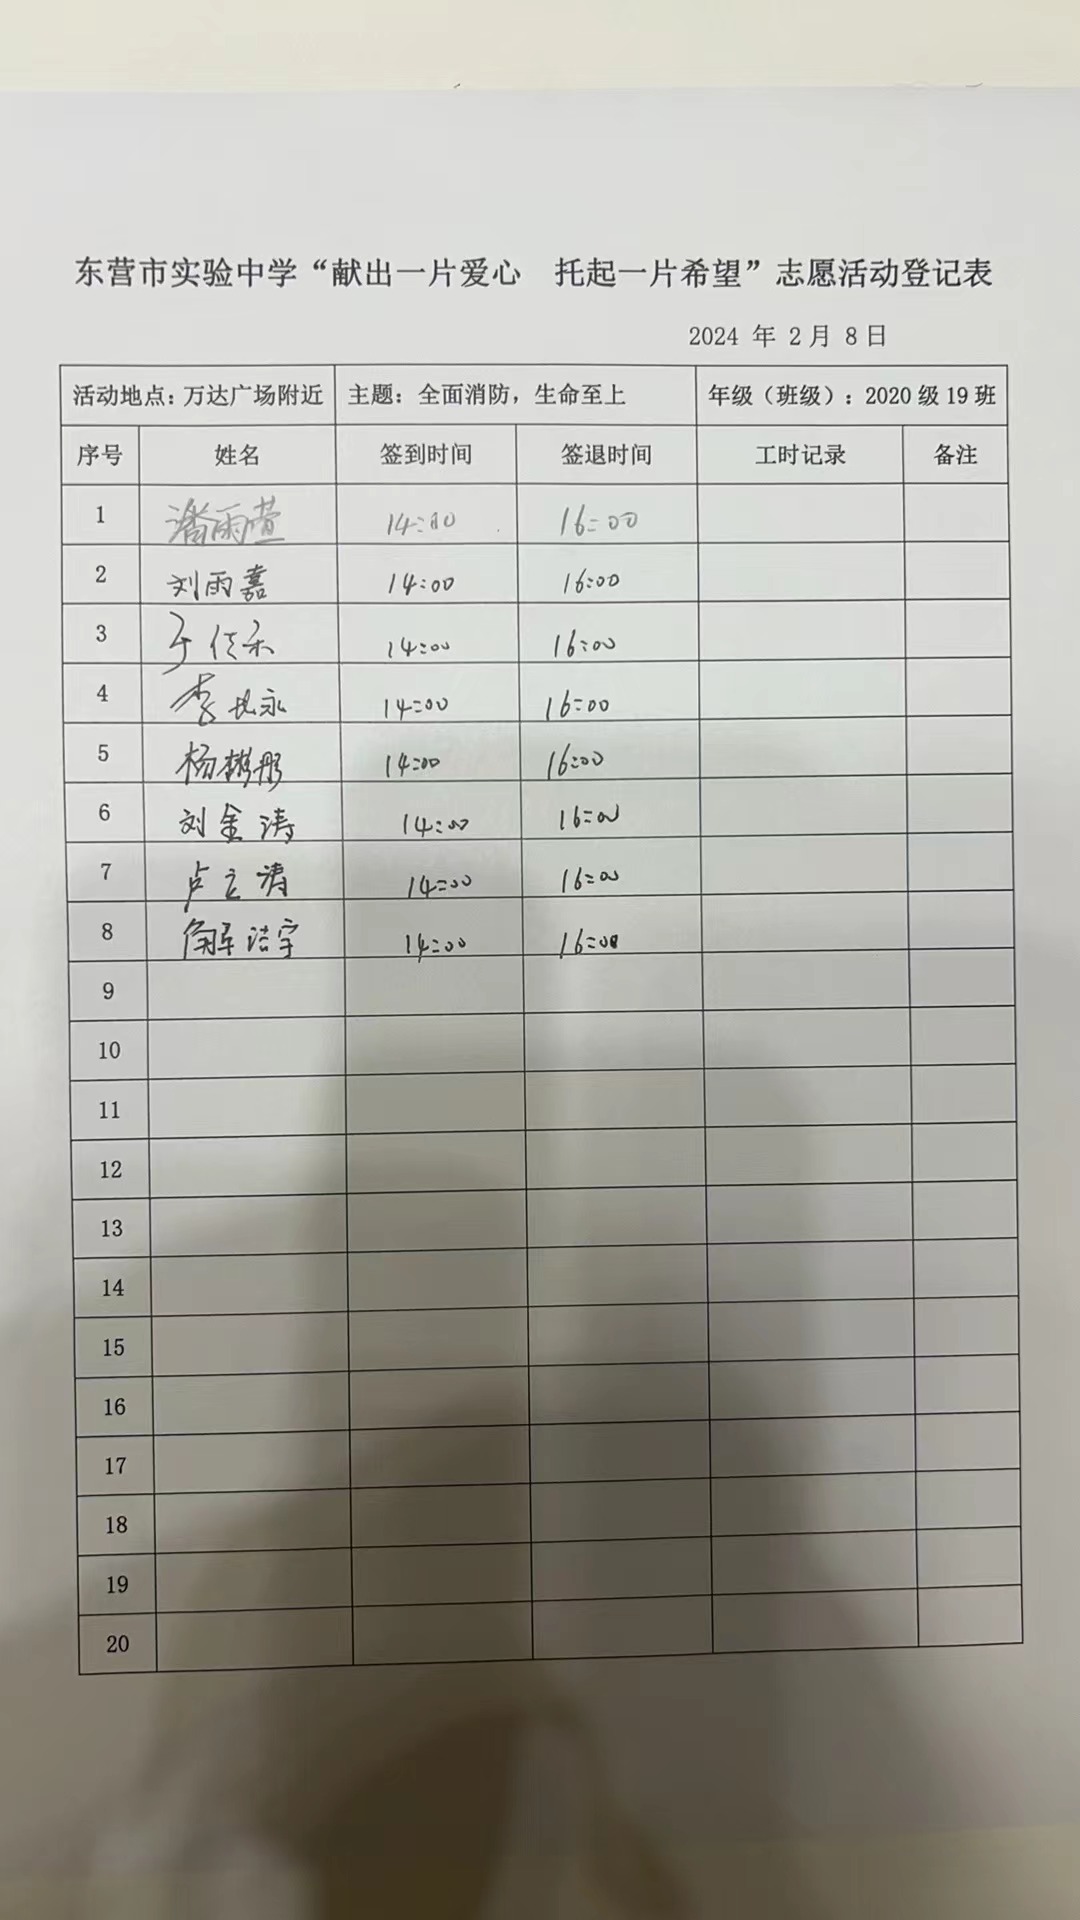 东营市实验中学“献出一片爱心　托起一片希望”志愿活动登记表
2024 年 2 月 8 日
活动地点：万达广场附近 主题：全面消防，生命至上 年级（班级）：2020 级 19 班
序号 姓名 签到时间 签退时间 工时记录 备注
1 潘雨萱 14:00 16:00
2 刘雨嘉 14:00 16:00
3 于佳禾 14:00 16:00
4 李 永 14:00 16:00
5 杨 彤 14:00 16:00
6 刘金涛 14:00 16:00
7 卢立涛 14:00 16:00
8 解洁宇 14:00 16:00
9
10
11
12
13
14
15
16
17
18
19
20